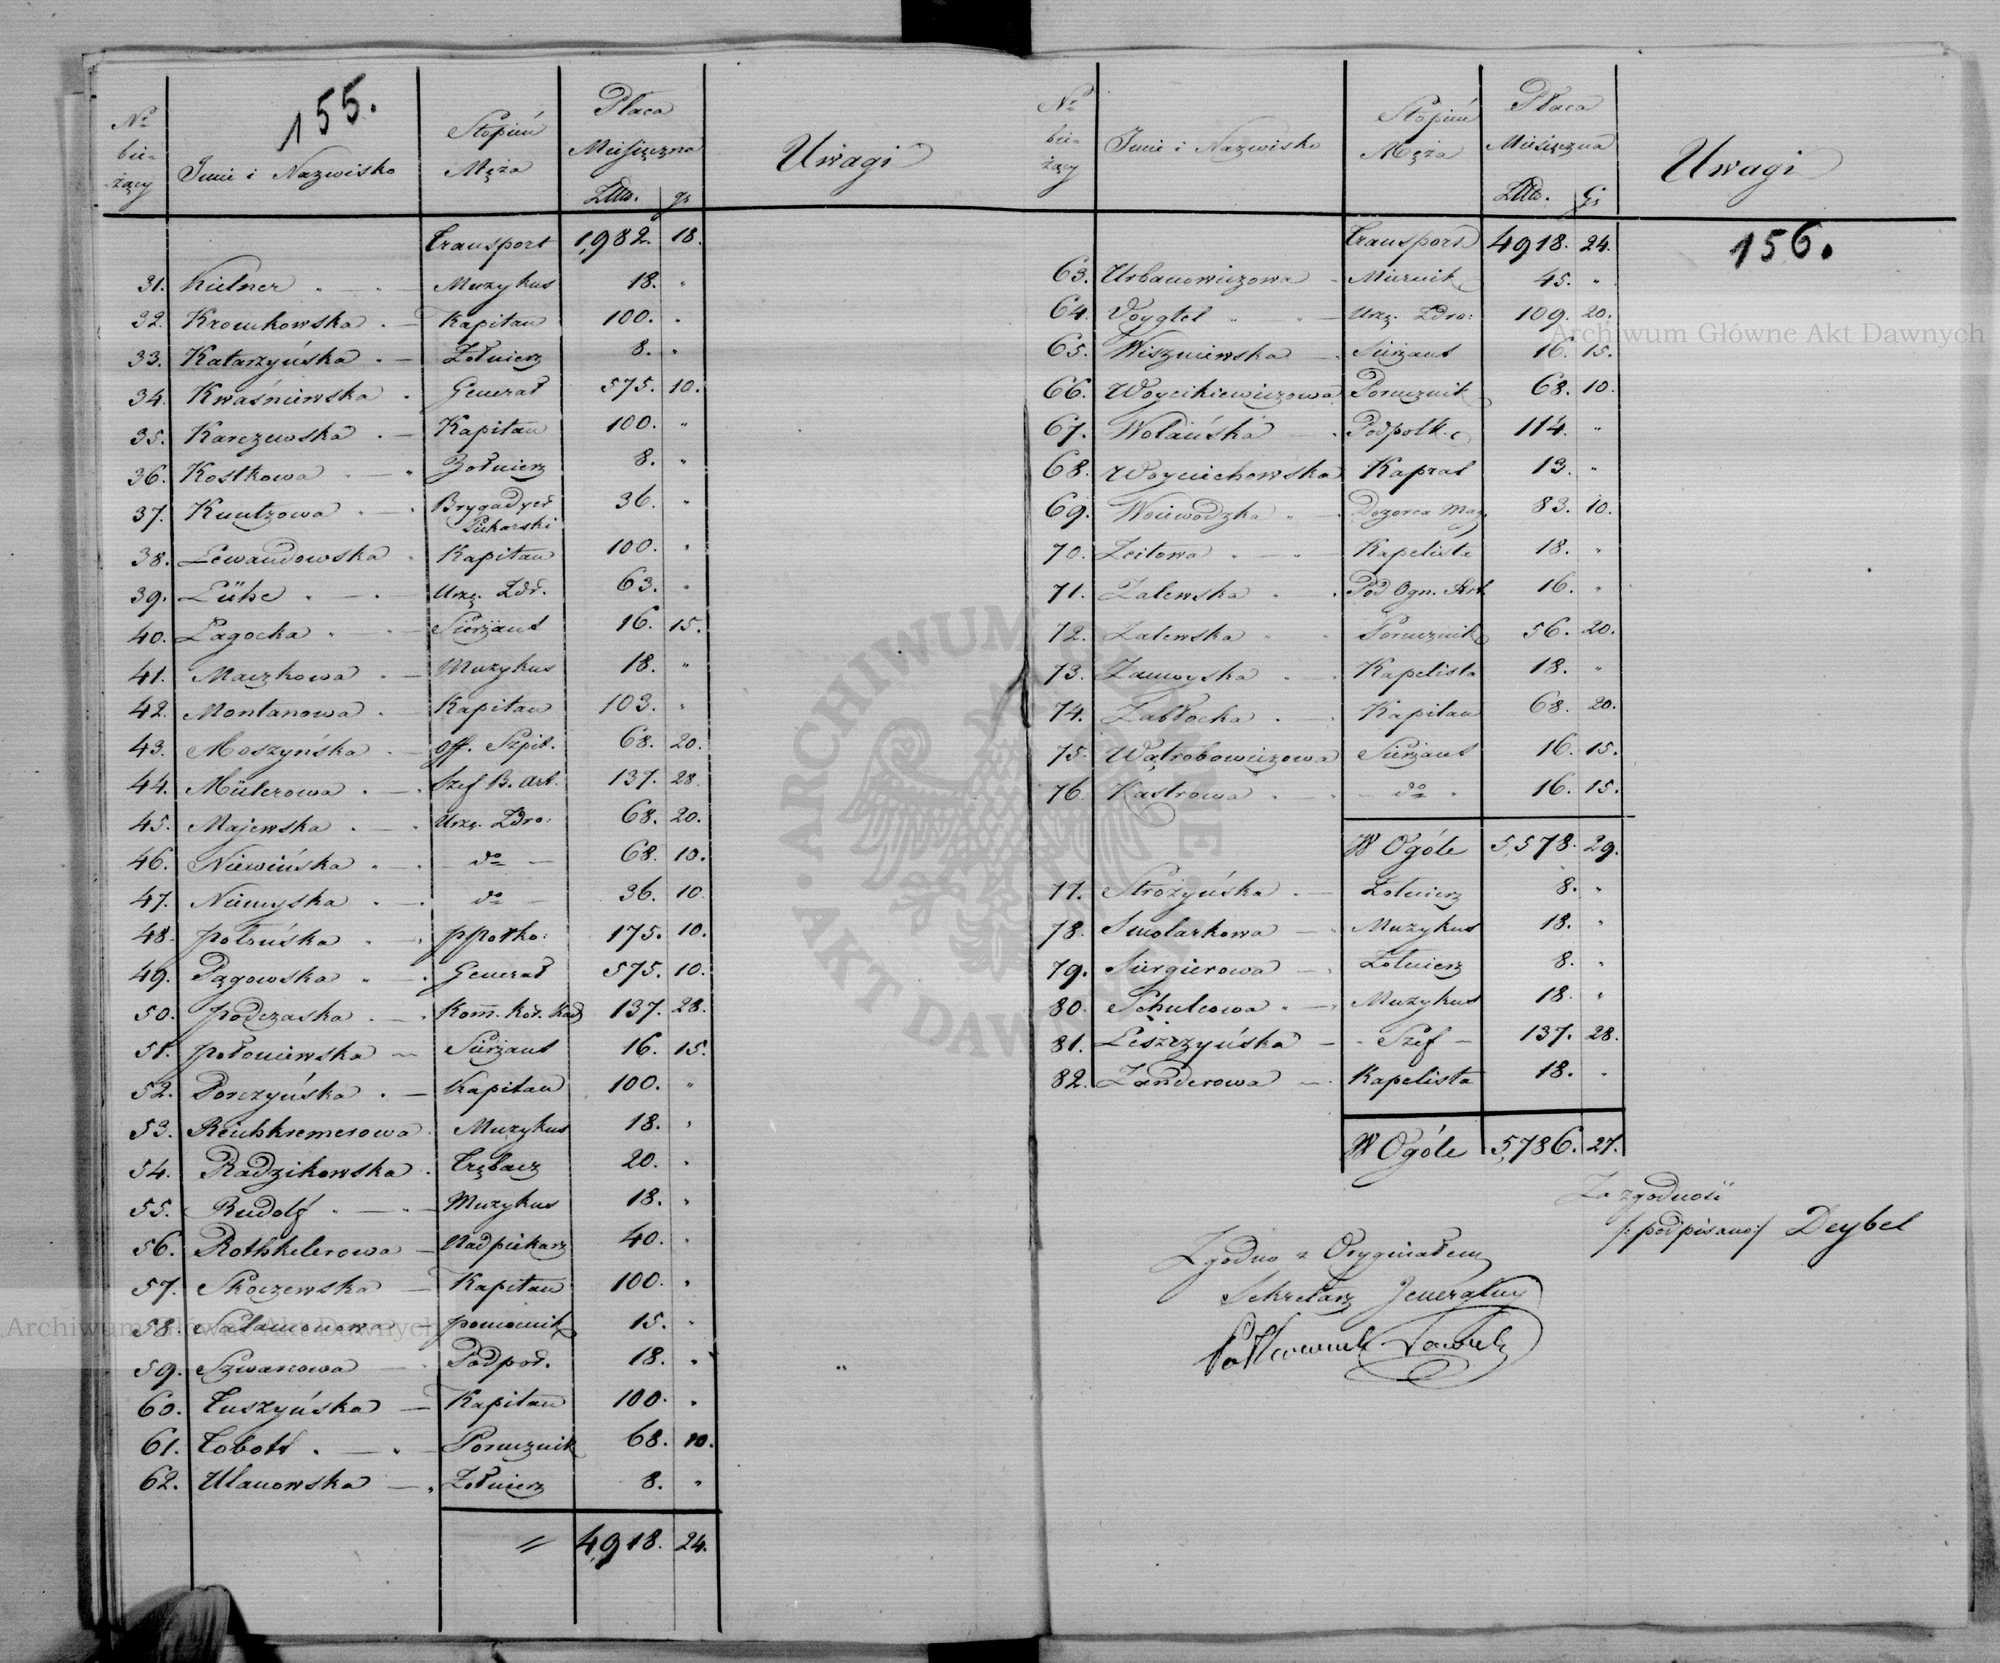 155.
Nr bieżący | Imie i Nazwisko | Stopień Męża | Płaca Miesięczna Złtt. gr | Uwagi
Transport 1,982. 18.
31. Kielner Muzykus 18. "
32. Kromkowska Kapitan 100. "
33. Katarzyńska Żołnierz 8. "
34. Kwaśniewska Generał 575. 10.
35. Karczewska Kapitan 100. "
36. Kostkowa Żołnierz 8. "
37. Kuntzowa Brygadyer Piekarski 36. "
38. Lewandowska Kapitan 100. "
39. Lühe Urzę. Zdr. 63. "
40. Łagocka Sierżant 16. 15.
41. Maczkowa Muzykus 18. "
42. Montanowa Kapitan 103. "
43. Moszyńska Off. Szpit. 68. 20.
44. Müllerowa Szef B. Art. 137. 28.
45. Majewska Urzę. Zdro: 68. 20.
46. Niewińska do 68. 10.
47. Niemyska do 36. 10.
48. Połońska pPołko: 175. 10.
49. Pągowska Generał 575. 10.
50. Podczaska Komm. Kor. Kad 137. 28.
51. Połoniewska Sierżant 16. 15.
52. Porczyńska Kapitan 100. "
53. Reichkremerowa Muzykus 18. "
54. Radzikowska Trębacz 20. "
55. Rudolf Muzykus 18. "
56. Rothkelerowa Nadpiekarz 40. "
57. Skoczewska Kapitan 100. "
58. Salamonowa pomocnik 15. "
59. Szwarcowa Podpor. 18. "
60. Tuszyńska Kapitan 100. "
61. Porucznik 68. 10.
62. Ulanowska Żołnierz 8. "
4,918. 24.
Nr bieżący | Imie i Nazwisko | Stopień Męża | Płaca Miesięczna Złtt. Gr | Uwagi
Transport 4918. 24.
156.
63. Urbanowiczowa Miernik 45. "
64. Voygtel Urzę. Zdro: 109. 20.
65. Wiszniewska Sierżant 16. 15.
66. Woycikiewiczowa Porucznik 68. 10.
67. Wolańska Podpołk. 114. "
68. Woyniechowska Kaprał 13. "
69. Woiewodzka Dozorca Mag. 83. 10.
70. Zeitowa Kapelista 18. "
71. Zalewska Pod Ogn. Art. 16. "
72. Zalewska Porucznik 56. 20.
73. Zamoyska Kapelista 18. "
74. Zabłocka Kapitan 68. 20.
75. Wątrobowiczowa Sierżant 16. 15.
76. Kastrowa do 16. 15.
W Ogóle 5,578. 29.
77. Strożyńska Żołnierz 8. "
78. Smolarkowa Muzykus 18. "
79. Siergierowa Żołnierz 8. "
80. Schulcowa Muzykus 18. "
81. Leszczyńska Szef 137. 28.
82. Zanderowa Kapelista 18. "
W Ogóle 5,786. 27.
Za zgodność
/: podpisano :/ Deybel
Zgodno z Oryginałem
Sekretarz Jeneralny
Archiwum Główne Akt Dawnych
Archiwum Główne Akt Dawnych
ARCHIWUM GŁÓWNE · AKT DAWNYCH ·